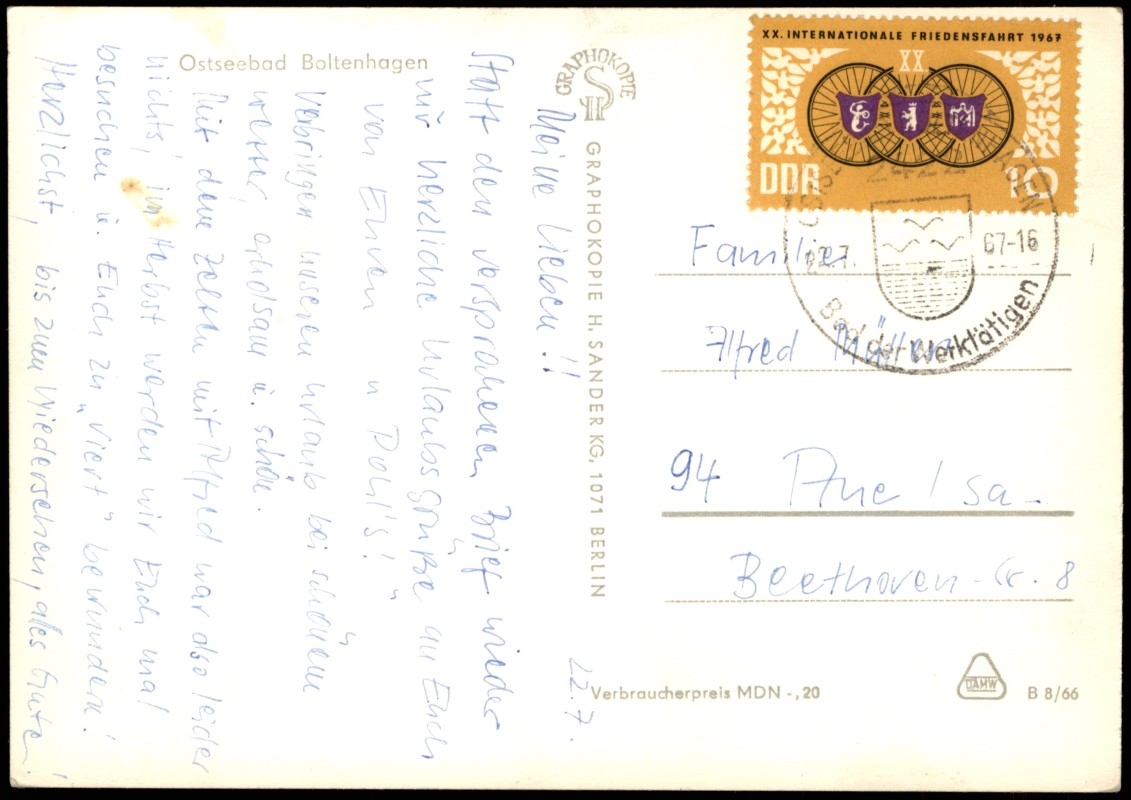 Ostseebad Boltenhagen
22.7.
Meine Lieben!!
Statt den versprochenen Brief wieder
nur herzliche Urlaubsgrüße an Euch
von Euren
Verbringen unseren Urlaub bei schönem
wetter, erholsam u. schön.
Mit dem Zelten mit Alfred war also leider
nichts, im Herbst werden wir Euch mal
besuchen u. Euch zu „Viert" bewundern!
Herzlichst, bis zum Wiedersehen, alles Gute!
GRAPHOKOPIE
H S
GRAPHOKOPIE H. SANDER KG, 1071 BERLIN
XX. INTERNATIONALE FRIEDENSFAHRT 1967
XX
DDR 10
22.7. 67-16
Bad der Werktätigen
Familie
Alfred Müller
94 Aue / Sa-
Beethoven-Str. 8
Verbraucherpreis MDN -,20
DAMW
B 8/66